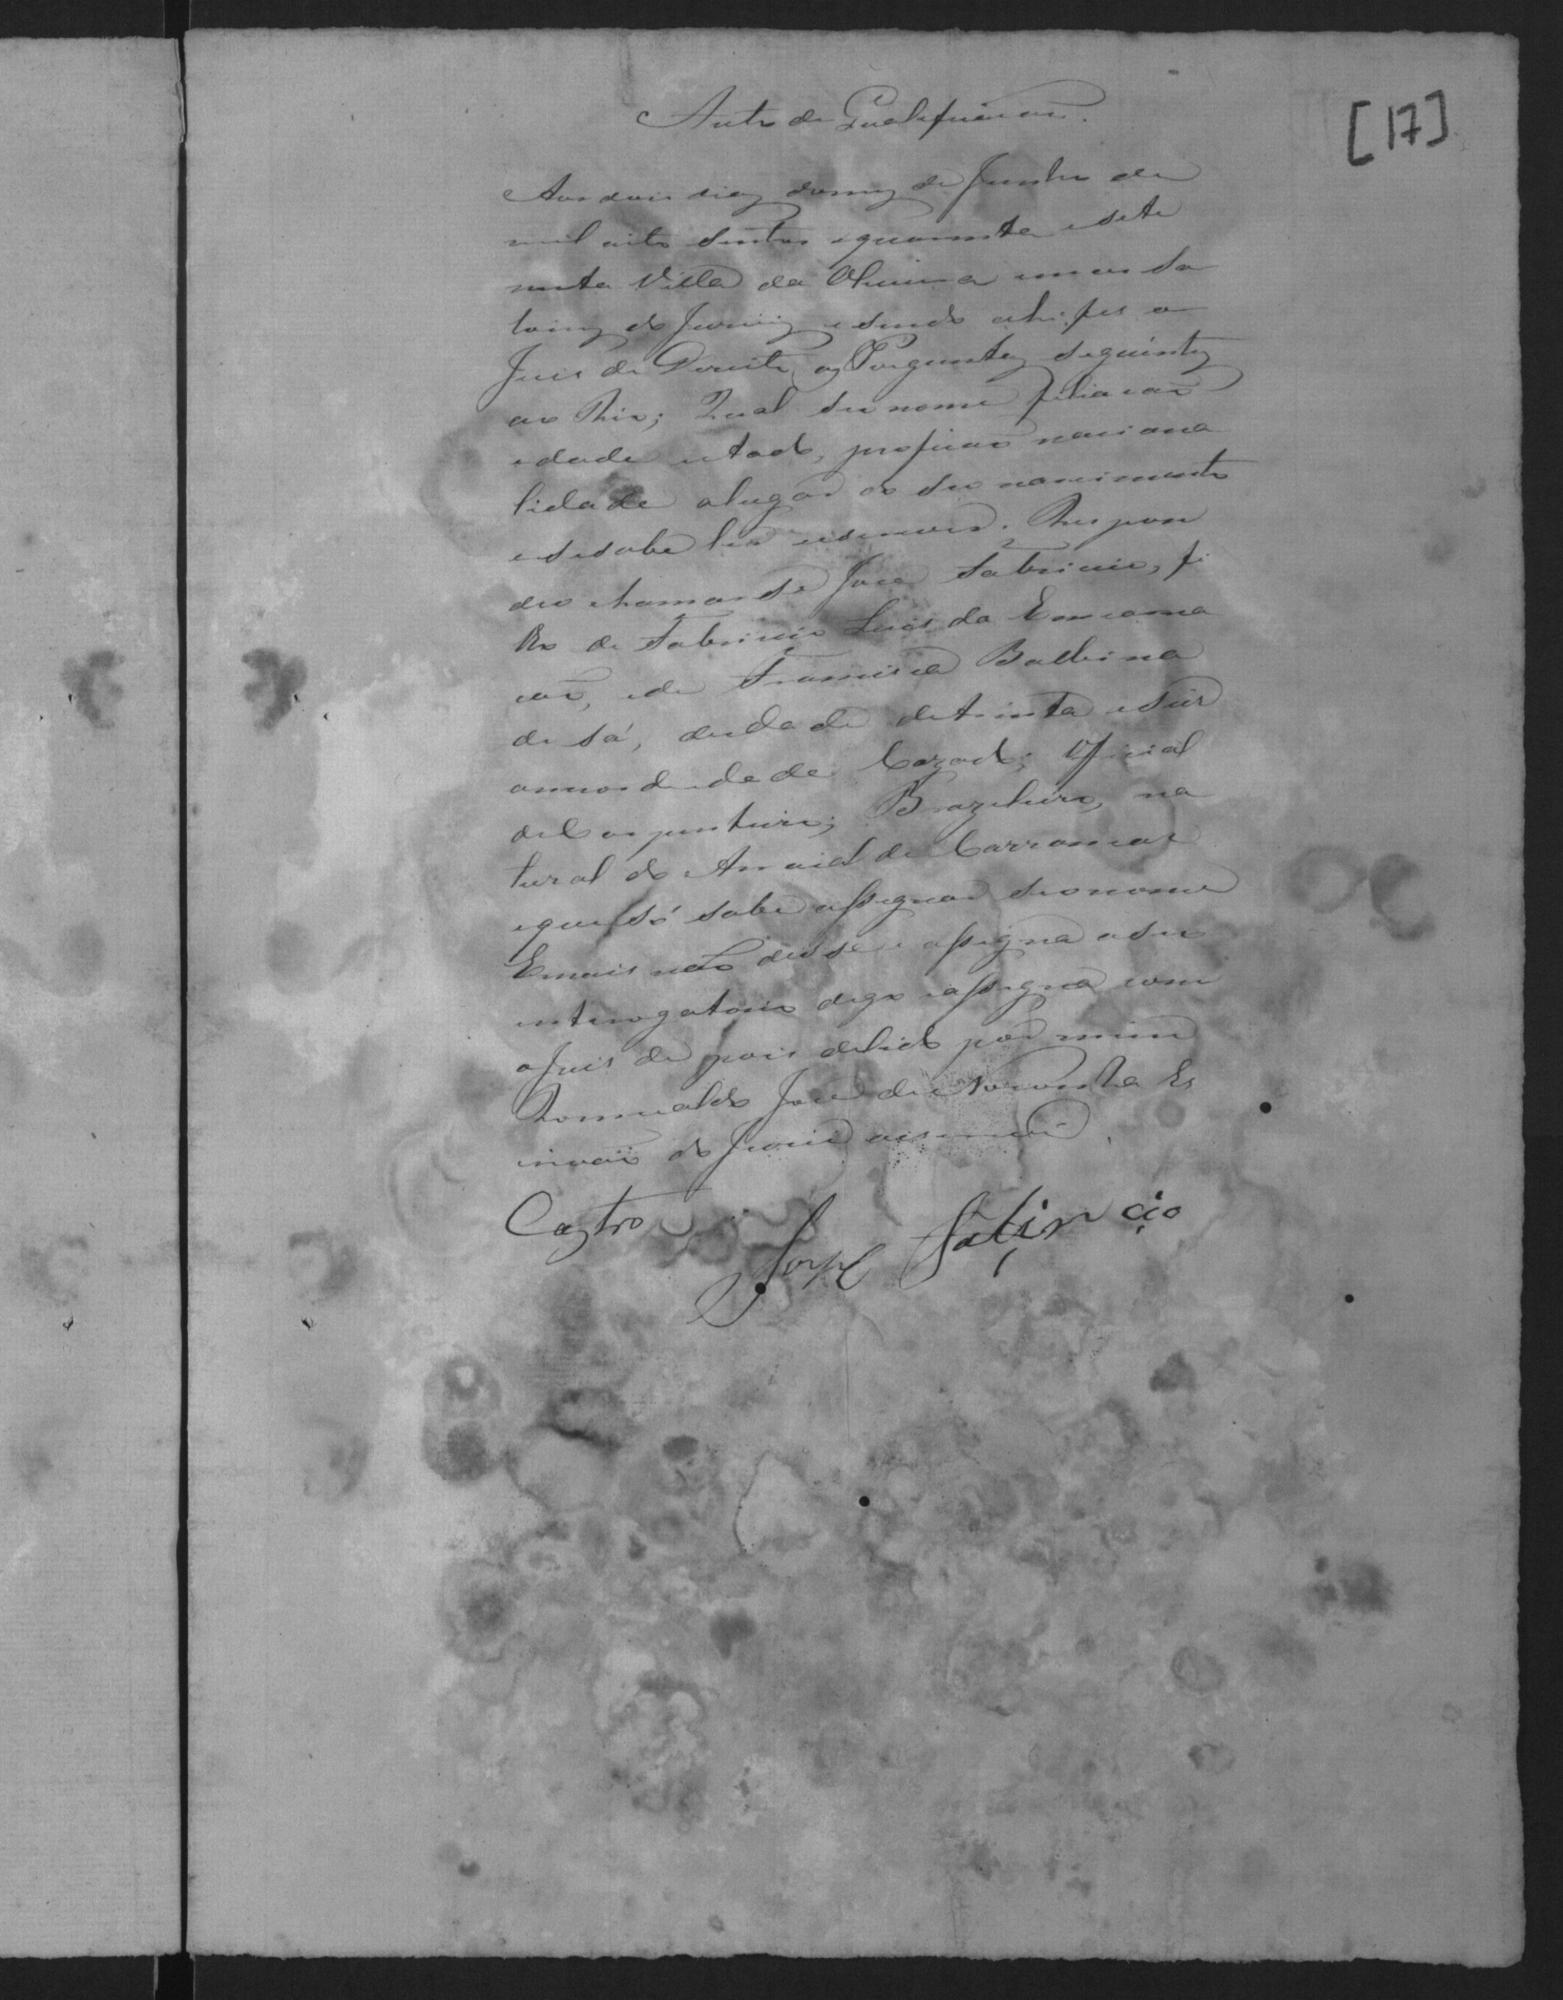 [17]
Auto de Qualificacaõ.
Aos dois dias do mez de Junho de
mil oito sentos e quarenta e sete
nesta Villa da em as da
do e sendo ahi fes o
Juis de Direito as Preguntas seguintes
ao Reo; Qual seu nome filiacaõ
edade estado, profiçaõ naciona
lidade olugar do seu nascimento
e se sabe ler e escrever. Respon
deo chamarse Jose Fabricio, fi
lho de Fabricio Luis da Encarna
caõ, e de Francisca Balbina
de Sá, de idade de trinta e seis
annos de idade Cazado; Official
de Carpinteiro; Brazileiro, na
tural do Arraial de Carrancas
e que só sabe assignar seo nome
E mais naõ disse e assigna o seu
interogatorio digo e assigna com
o Juis de pois de lido por mim
Romualdo Jose de Noronha Es
crivaõ do Jurii o escrevi.
Castro
Jose Fabricio